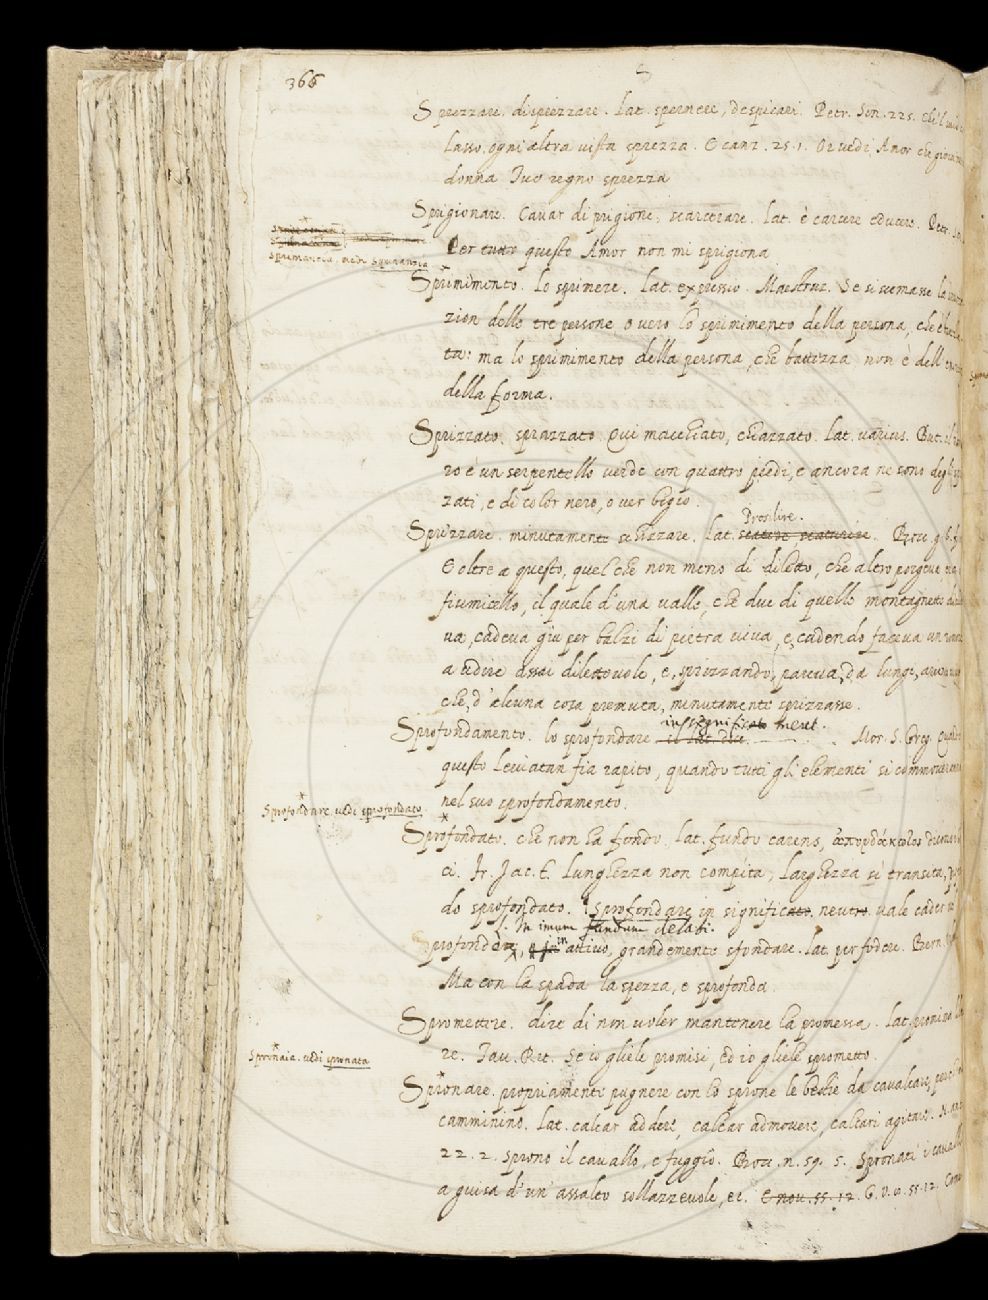 366
S
Sprezzare. dispiezzare. Lat. spernere, despicari. Petr. Son. 225.
lasso. ogni altra vista sprezza. E canz. 25. 1. Or vedi Amor che
donna Tuo regno sprezza
Sprigionare. Cavar di prigione. scarcerare. lat. è carcere educere. Petr.
Per tutto questo Amor non mi sprigiona
sprimanzia, vedi squinanzia
Sprimimento. Lo sprimere. lat. expressio. Maestruz. Se si scemasse la
zion delle tre persone o vero lo sprimimento della persona, che
ta: ma lo sprimimento della persona, che battezza non è dell
della forma.
Sprizzato. sprazzato. Qui macchiato, chiazzato. lat. varius. But.
ro è un serpentello verde con quattro piedi, e ancora ne sono degli
zati, e di color nero, o ver bigio.
Prosilire.
Sprizzare. minutamente schizzare. lat. Bocc. g. 6. f.
E oltre a questo, quel che non meno di diletto, che altro porgeva
fiumicello, il quale d'una valle, che due di quelle montagnette
va, cadeva giu per balzi di pietra viva, e, cadendo faceva un
a udire assai dilettevole, e, sprizzando, pareva, da lungi,
che, d'alcuna cosa premuta, minutamente sprizzasse.
in significat. neut.
Sprofondamento. lo sprofondare il lat. dice Mor. S. Greg.
questo Leviatan fia rapito, quando tutti gli elementi si
nel suo sprofondamento.
Sprofondare. vedi sprofondato.
Sprofondato. che non ha fondo. lat. fundo carens,
ci. Fr. Jac. t. lunghezza non compita, larghezza si transita,
do sprofondato. Sprofondare in significato. neutro. vale cader
In imum fundum delabi.
Sprofondar, in attivo, grandemente sfondare. lat. perfodere. Bern
Ma con la spada la spezza, e sprofonda
Spromettere. dire di non voler mantenere la promessa. lat.
re. Tav. Rit. Se io gliele promisi, ed io gliele sprometto.
Spronaia. vedi spronata
Spronare. propriamente pugnere con lo sprone le bestie da cavalcare,
camminino. lat. calcar addere, calcar admovere, calcari agitare.
22. 2. Sprono il cavallo, e fuggio. Bocc. n. 59. 5. Spronati i
a guisa d'un assalto sollazzevole, ec. E nov. 55. 12. G. V. 11. 55. 12.